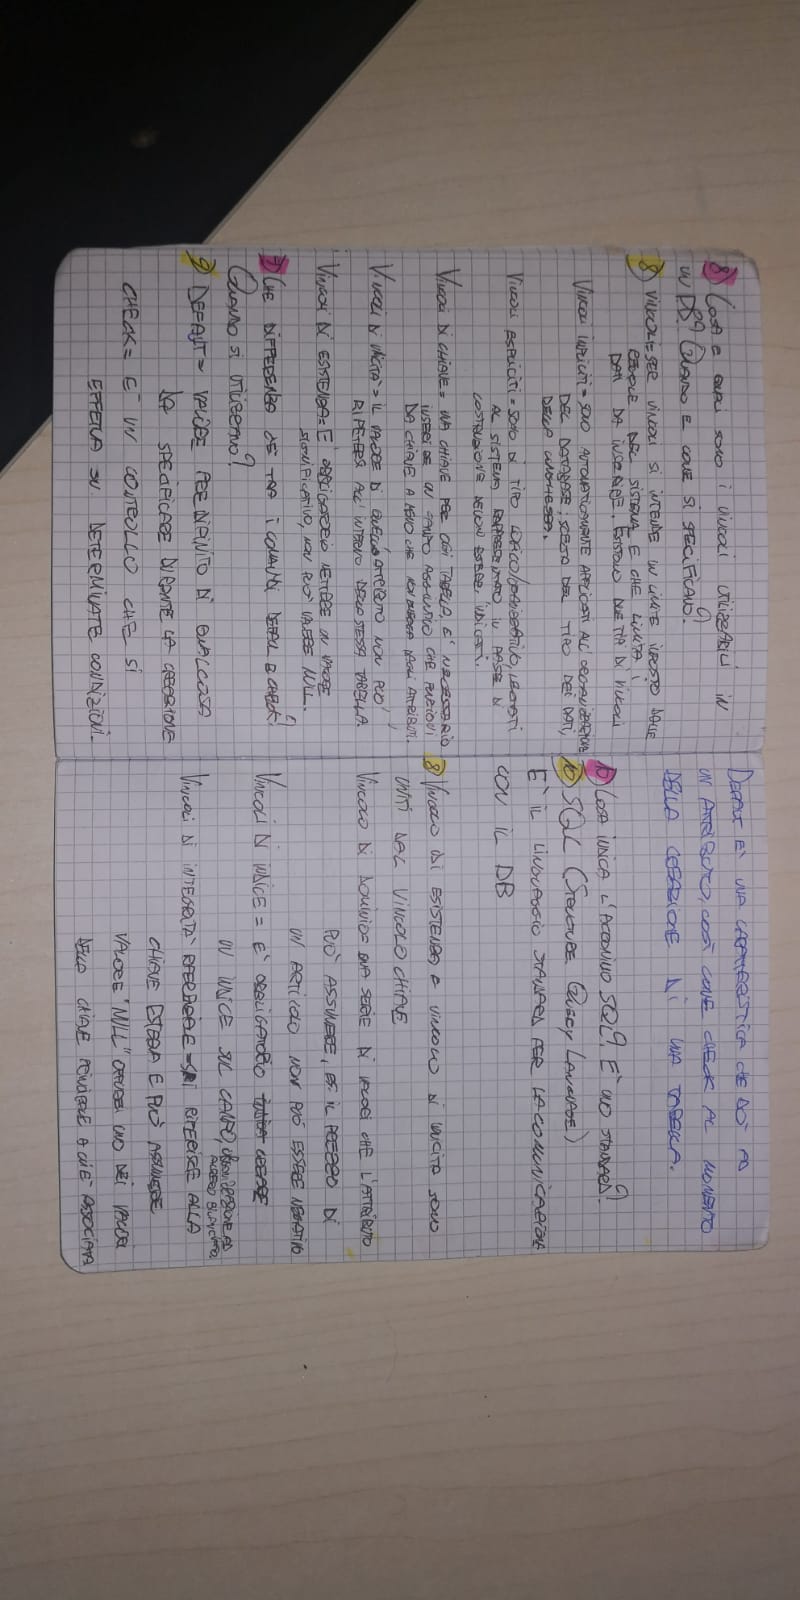 8) COSA E QUALI SONO I VINCOLI UTILIZZABILI IN
UN DB? QUANDO E COME SI SPECIFICANO?
8) VINCOLI= PER VINCOLI SI INTENDE UN LIMITE IMPOSTO DALLE
REGOLE DEL SISTEMA E CHE LIMITA I
DATI DA INSERIRE. ESISTONO DUE TIPI DI VINCOLI
VINCOLI IMPLICITI= SONO AUTOMATICAMENTE APPLICATI ALL'ORGANIZZAZIONE
DEL DATABASE; SCELTA DEL TIPO DEI DATI,
DELLA LUNGHEZZA.
VINCOLI ESPLICITI= SONO DI TIPO LOGICO/OPERATIVO, LEGATI
AL SISTEMA RAPPRESENTATO IN FASE DI
COSTRUZIONE DEVONO ESSERE INDICATI.
VINCOLI DI CHIAVE= UNA CHIAVE PER OGNI TABELLA, E' NECESSARIO
INSERIRE UN CAMPO AGGIUNTIVO CHE FUNZIONI
DA CHIAVE A MENO CHE NON DAGLI ATTRIBUTI.
VINCOLI DI UNICITÀ= IL VALORE DI QUELL'ATTRIBUTO NON PUO'
RIPETERSI ALL'INTERNO DELLA STESSA TABELLA.
VINCOLI DI ESISTENZA= E' OBBLIGATORIO METTERE UN VALORE
SIGNIFICATIVO, NON PUO' VALERE NULL.
9) CHE DIFFERENZA C'È TRA I COMANDI DEFAUL E CHECK?
QUANDO SI UTILIZZANO?
9) DEFAUT= VALORE PREDIFINITO DI QUALCOSA
DA SPECIFICARE DURANTE LA CREAZIONE
CHECK= E' UN CONTROLLO CHE SI
EFFETTUA SU DETERMINATE CONDIZIONI.
DEFAUT E' UNA CARATTERISTICA CHE DO' AD
UN ATTRIBUTO, COSÌ COME CHECK AL MOMENTO
DELLA CREAZIONE DI UNA TABELLA.
10) COSA INDICA L'ACRONIMO SQL? E' UNO STANDARD?
10) SQL (STRUCTURE QUERY LANGUAGE)
E' IL LINGUAGGIO STANDARD PER LA COMUNICAZIONE
CON IL DB
8 VINCOLO DI ESISTENZA E VINCOLO DI UNICITÀ SONO
UNITI DAL VINCOLO CHIAVE
VINCOLO DI DOMINIO= UNA SERIE DI VALORI CHE L'ATTRIBUTO
PUÒ ASSUMERE, ES. IL PREZZO DI
UN ARTICOLO NON PUÒ ESSERE NEGATIVO
VINCOLI DI INDICE = E' OBBLIGATORIO CREARE
UN INDICE SUL CAMPO, ORGANIZZAZIONE AD
ALBERO BILANCIATO.
VINCOLI DI INTEGRITÀ REFERENZIALE= SI RIFERISCE ALLA
CHIAVE ESTERNA E PUÒ ASSUMERE
VALORE "NULL" OPPURE UNO DEI VALORI
DELLA CHIAVE PRINCIPALE A CUI E' ASSOCIATA